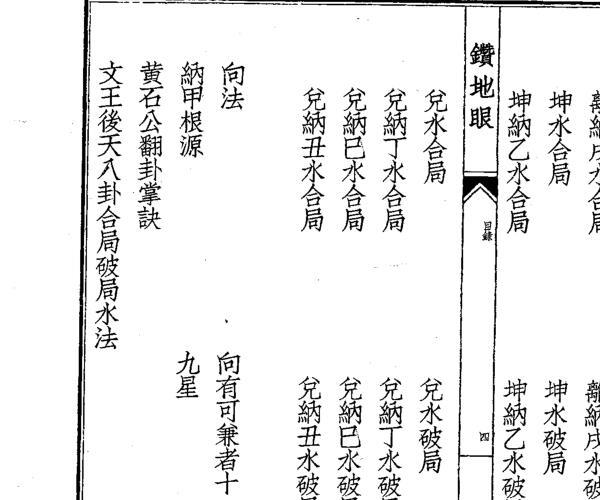 離納戌水合局
離納戌水破
坤水合局
坤水破局
坤納乙水合局
坤納乙水破
鑽地眼
目錄
四
兌水合局
兌水破局
兌納丁水合局
兌納丁水破
兌納巳水合局
兌納巳水破
兌納丑水合局
兌納丑水破
向法
向有可兼者十
納甲根源
九星
黄石公翻卦掌訣
文王後天八卦合局破局水法